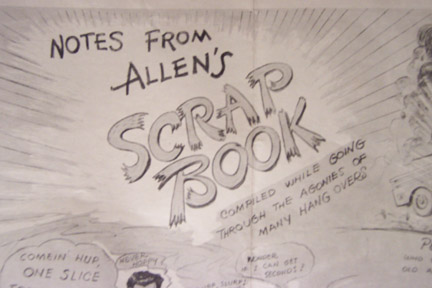 NOTES FROM
ALLEN'S
SCRAP
BOOK
COMPILED WHILE GOING
THROUGH THE AGONIES OF
MANY HANG OVERS
COMEIN HUP,
ONE SLICE
SECONDS!